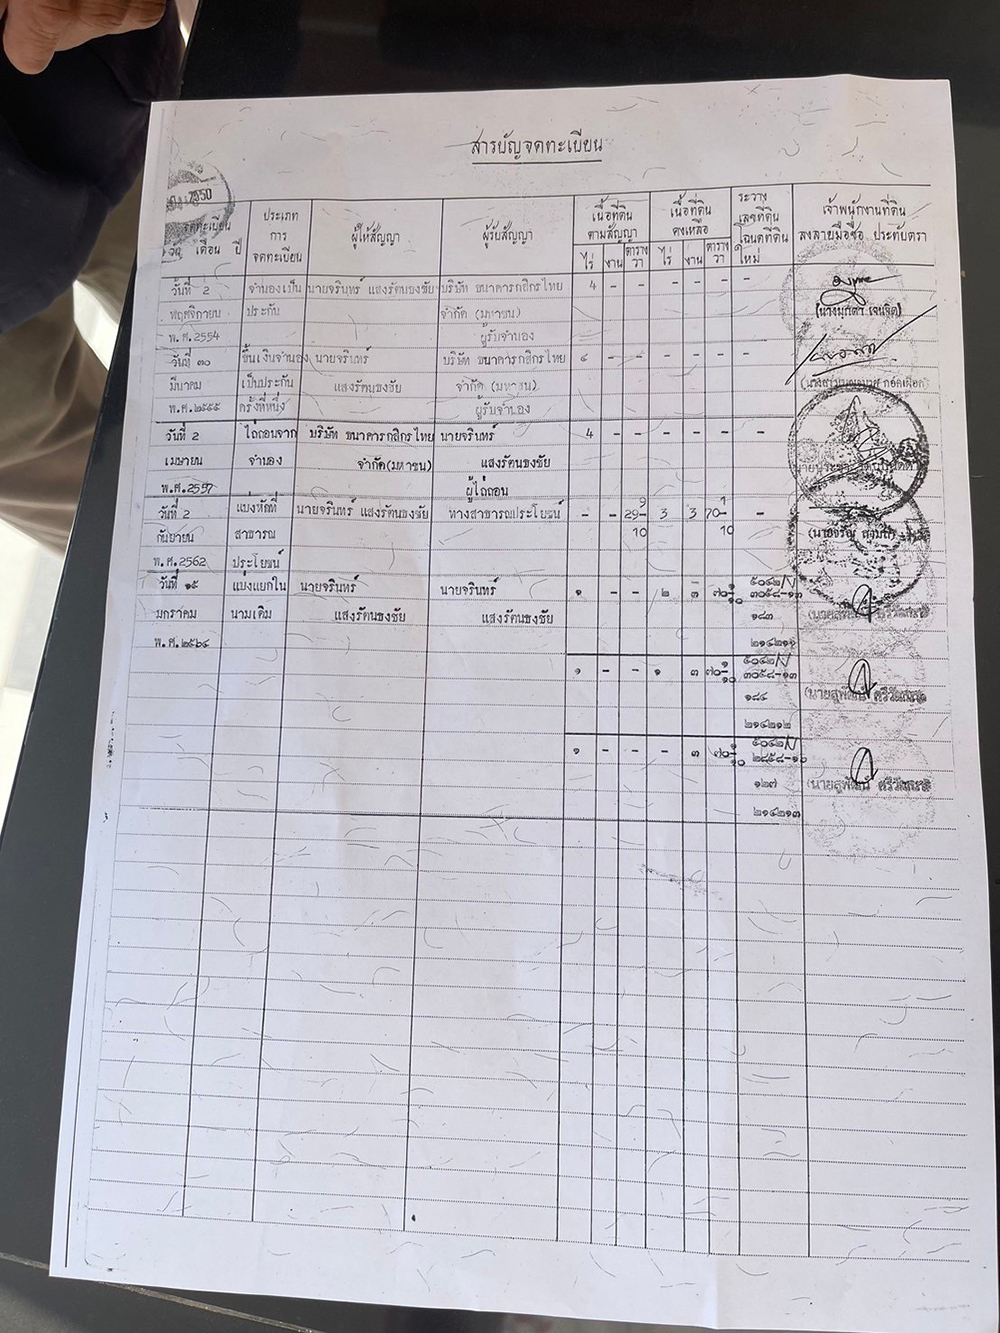 สารบัญจดทะเบียน
2550
จดทะเบียน
วัน เดือน ปี
ประเภท
การ
จดทะเบียน
ผู้ให้สัญญา
ผู้รับสัญญา
เนื้อที่ดิน
ตามสัญญา
ไร่ งาน ตาราง
วา
เนื้อที่ดิน
คงเหลือ
ไร่ งาน ตาราง
วา
ระวาง
เลขที่ดิน
โฉนดที่ดิน
ใหม่
เจ้าพนักงานที่ดิน
ลงลายมือชื่อ ประทับตรา
วันที่ 2 จำนองเป็น นายจรินทร์ แสงรัตนธงชัย บริษัท ธนาคารกสิกรไทย 4 - - - - - -
พฤศจิกายน ประกัน จำกัด (มหาชน) (นางมุกดา เจนจิต)
พ.ศ.2554 ผู้รับจำนอง
วันที่ ๓๐ ขึ้นเงินจำนอง นายจรินทร์ บริษัท ธนาคารกสิกรไทย ๔ - - - - - -
มีนาคม เป็นประกัน แสงรัตนธงชัย จำกัด (มหาชน)
พ.ศ.๒๕๕๕ ครั้งที่หนึ่ง ผู้รับจำนอง
วันที่ 2 ไถ่ถอนจาก บริษัท ธนาคารกสิกรไทย นายจรินทร์ 4 - - - - - -
เมษายน จำนอง จำกัด(มหาชน) แสงรัตนธงชัย
พ.ศ.2557 ผู้ไถ่ถอน
วันที่ 2 แบ่งหักที่ นายจรินทร์ แสงรัตนธงชัย ทางสาธารณประโยชน์ - - 29 9/10 3 3 70 1/10 -
กันยายน สาธารณ
พ.ศ.2562 ประโยชน์
วันที่ ๑๕ แบ่งแยกใน นายจรินทร์ นายจรินทร์ ๑ - - ๒ ๓ ๗๐ ๑/๑๐ ๕๐๔๒ N
๓๐๕๘-๑๓
มกราคม นามเดิม แสงรัตนธงชัย แสงรัตนธงชัย ๑๘๓
พ.ศ.๒๕๖๔ ๒๑๔๒๑๑
๑ - - ๑ ๓ ๗๐ ๑/๑๐ ๕๐๔๒ N
๓๐๕๘-๑๓
๑๘๔ (นายสุพัฒน์
๒๑๔๒๑๒
๑ - - - ๓ ๗๐ ๑/๑๐ ๕๐๔๒ N
๒๘๕๘-๑๖
๑๒๗ (นายสุพัฒน์
๒๑๔๒๑๓